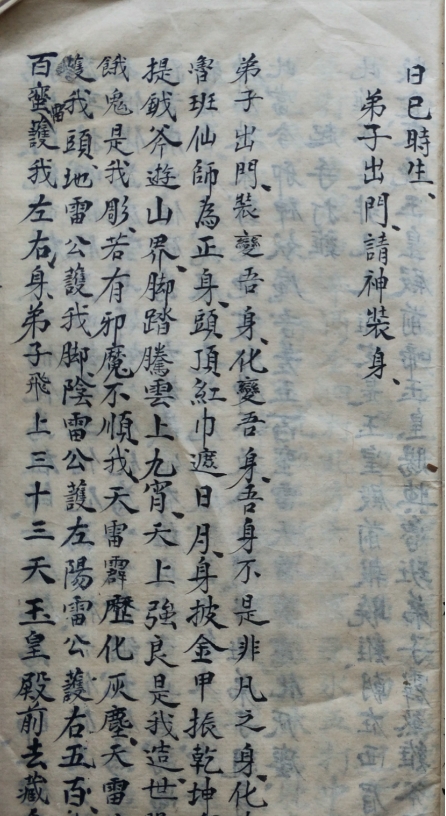 日巳時生、
弟子出門、請神裝身、
弟子出門、裝變吾身、化變吾身、吾身不是非凡之身、化
魯班仙師為正身、頭頂紅巾遮日月、身披金甲振乾坤、
提鉞斧遊山界、脚踏騰雲上九宵、天上強良是我造、世
餓鬼是我彫、若有邪魔不順我、天雷霹歷化灰塵、天雷
護我頭地雷公護我脚、陰雷公護左陽雷公護右五百
百蠻雷護我左右身、弟子飛上三十三天玉皇殿前去藏